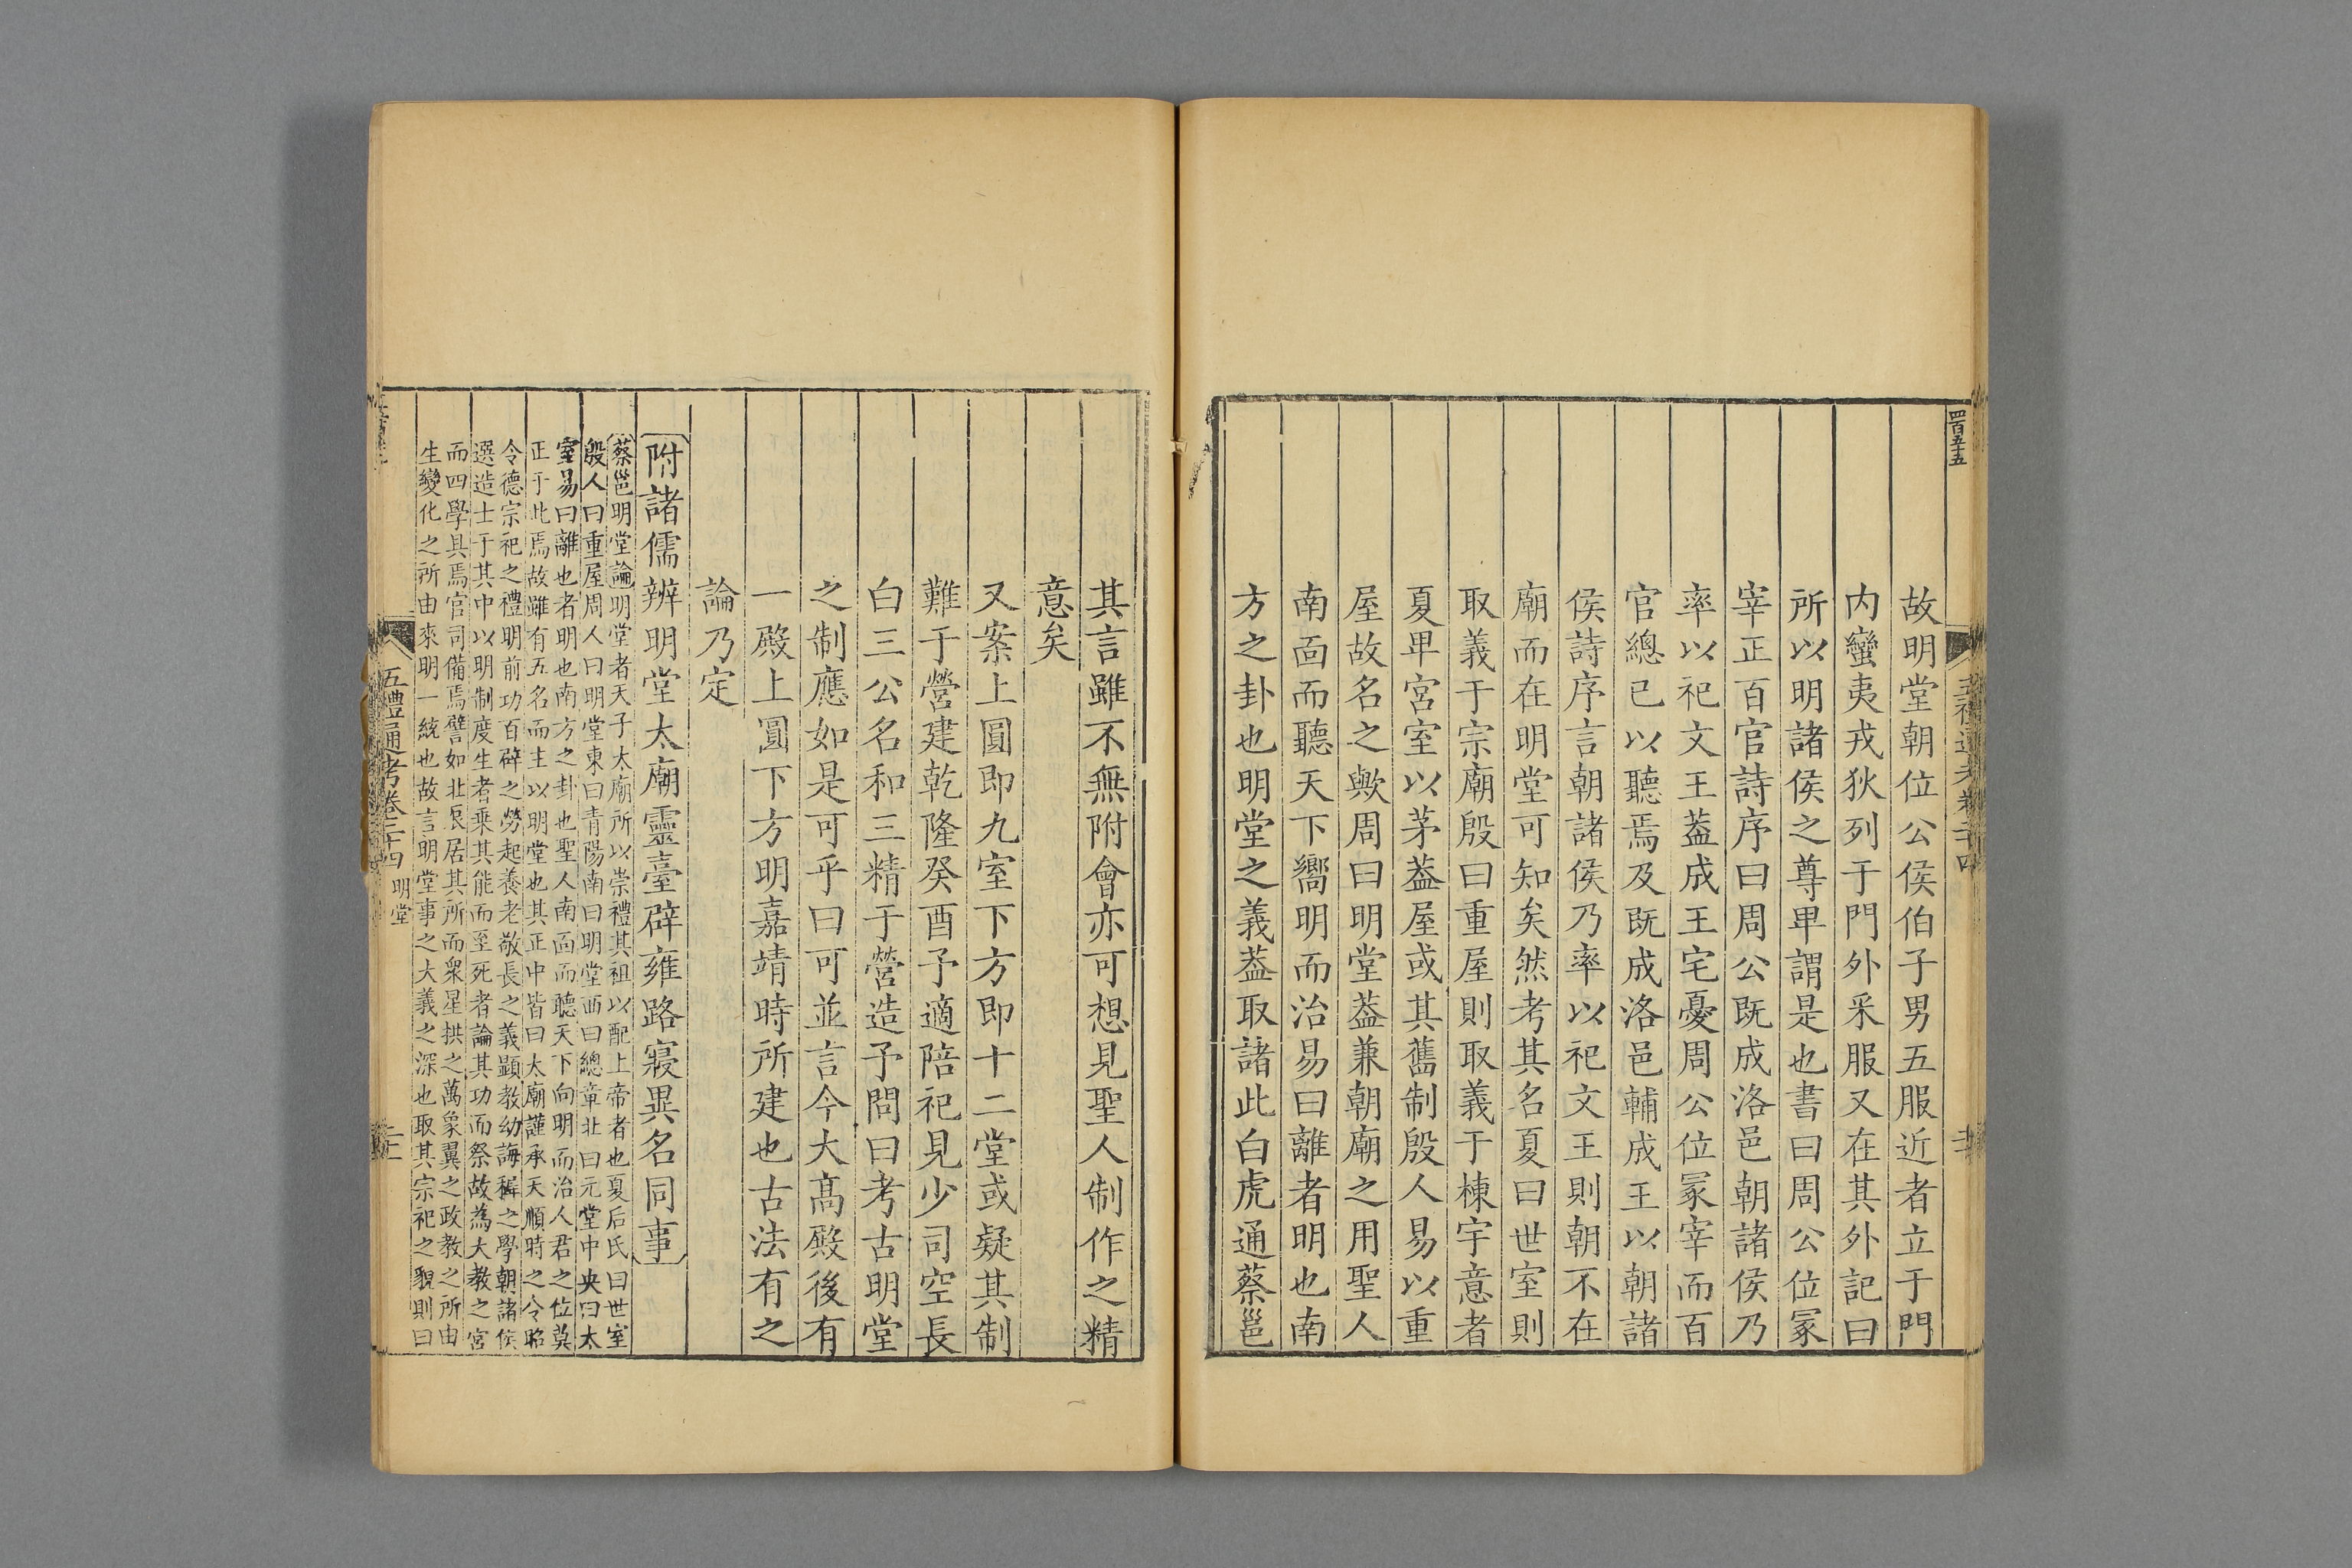 四百五十五
故明堂朝位公侯伯子男五服近者立于門
内蠻夷戎狄列于門外采服又在其外記曰
所以明諸侯之尊卑謂是也書曰周公位冢
宰正百官詩序曰周公既成洛邑朝諸侯乃
率以祀文王葢成王宅憂周公位冢宰而百
官總已以聽焉及既成洛邑輔成王以朝諸
侯詩序言朝諸侯乃率以祀文王則朝不在
廟而在明堂可知矣然考其名夏曰世室則
取義于宗廟殷曰重屋則取義于棟宇意者
夏卑宮室以茅葢屋或其舊制殷人易以重
屋故名之歟周曰明堂葢兼朝廟之用聖人
南面而聽天下嚮明而治易曰離者明也南
方之卦也明堂之義葢取諸此白虎通蔡邕
其言雖不無附會亦可想見聖人制作之精
意矣
又案上圓即九室下方即十二堂或疑其制
難于營建乾隆癸酉予適陪祀見少司空長
白三公名和三精于營造予問曰考古明堂
之制應如是可乎曰可並言今大高殿後有
一殿上圓下方明嘉靖時所建也古法有之
論乃定
附諸儒辨明堂太廟靈臺辟雍路寢異名同事
蔡邕明堂論明堂者天子太廟所以崇禮其祖以配上帝者也夏后氏曰世室
殷人曰重屋周人曰明堂東曰青陽南曰明堂西曰總章北曰元堂中央曰太
室易曰離也者明也南方之卦也聖人南面而聽天下向明而治人君之位莫
正于此焉故雖有五名而主以明堂也其正中皆曰太廟謹承天順時之令昭
令德宗祀之禮明前功百辟之勞起養老敬長之義顯教幼誨穉之學朝諸侯
選造士于其中以明制度生者乘其能而至死者論其功而祭故為大教之宮
而四學具焉官司備焉譬如北辰居其所而衆星拱之萬象翼之政教之所由
生變化之所由來明一統也故言明堂事之大義之深也取其宗祀之貌則曰
五禮通考卷二十四 明堂